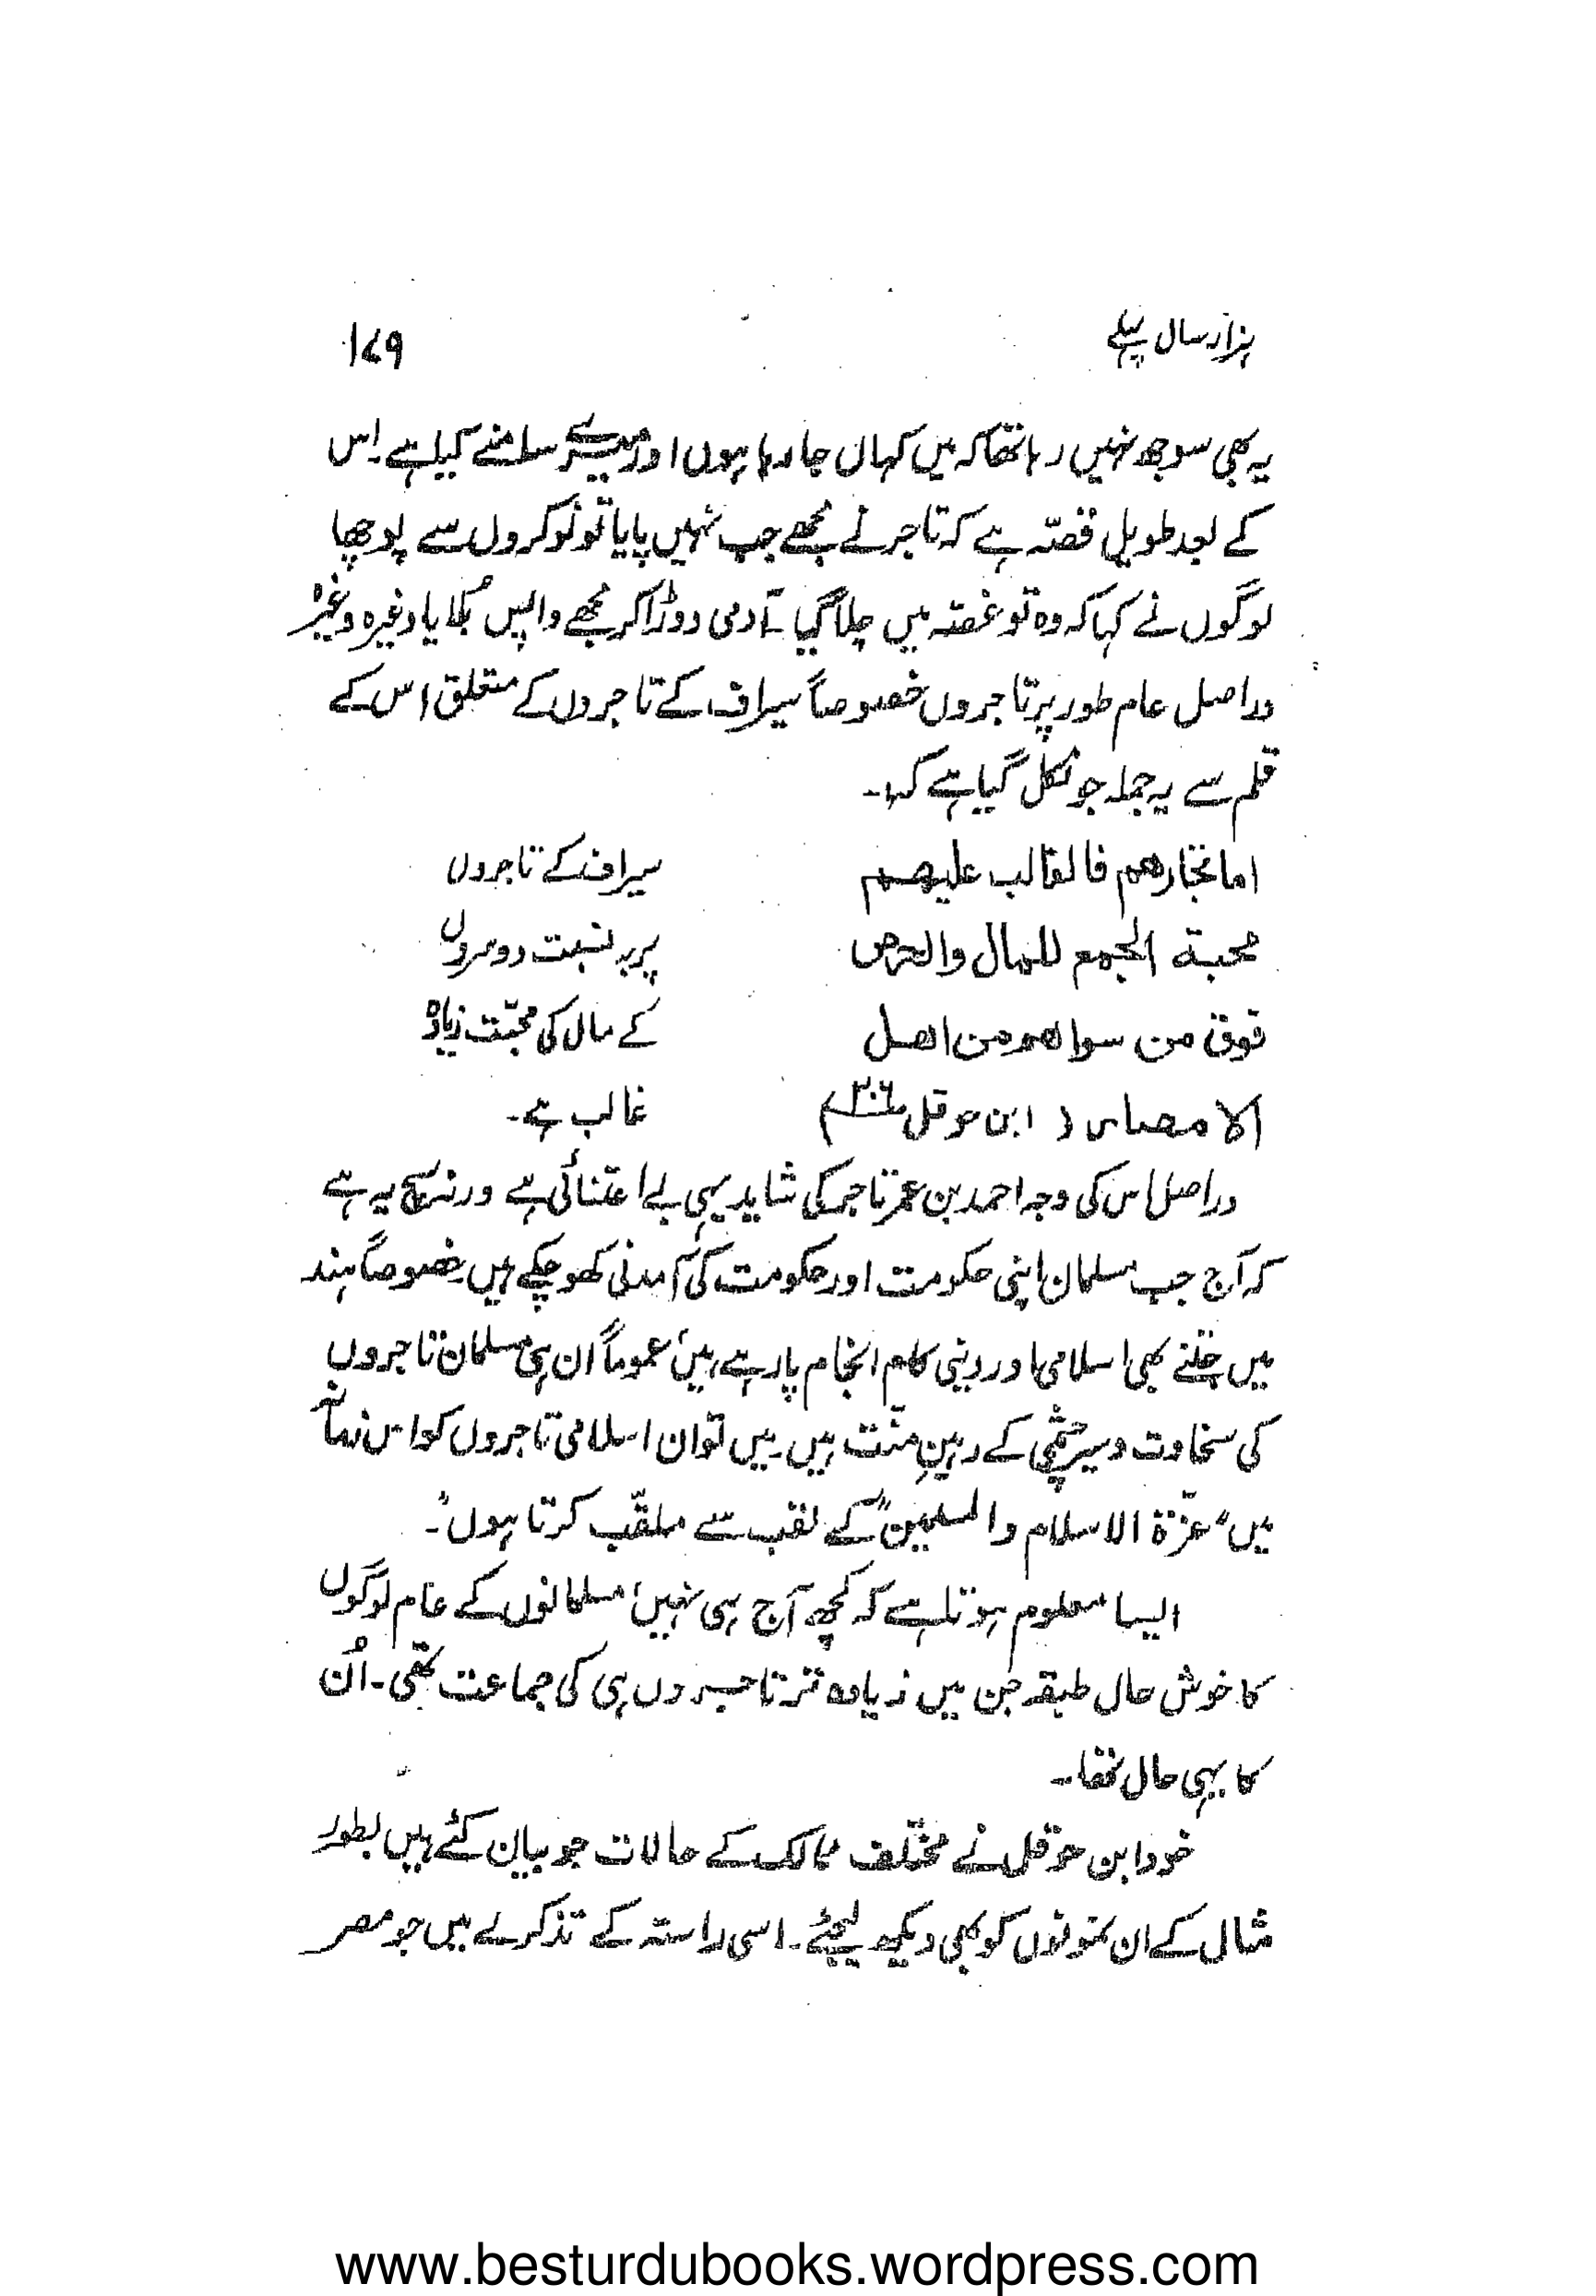 ہزار سال پہلے ۱۷۹
یہ بھی سوجھ نہیں رہا تھا کہ میں کہاں جا رہا ہوں اور میرے سامنے کیا ہے۔ اس
کے بعد طویل قصّہ ہے کہ تاجر نے مجھے جب نہیں پایا تو نوکروں سے پوچھا
لوگوں نے کہا کہ وہ تو غصّہ میں چلا گیا آدمی دوڑا کر مجھے واپس بُلایا وغیرہ وغیرہ
دراصل عام طور پر تاجروں خصوصاً سیراف کے تاجروں کے متعلق اس کے
قلم سے یہ جملہ جو نکل گیا ہے کہ:۔
اما تجارهم فالغالب عليهم سیراف کے تاجروں
محبة الجمع للمال والحرص پر بہ نسبت دوسروں
فوق من سواهم من اهل کے مال کی محبّت زیادہ
الامصار (ابن حوقل ص۲۰۶) غالب ہے۔
دراصل اس کی وجہ احمد بن عمر تاجر کی شاید یہی بے اعتنائی ہے ورنہ سچ یہ ہے
کہ آج جب مسلمان اپنی حکومت اور حکومت کی آمدنی کھو چکے ہیں۔ خصوصاً ہند
میں جتنے بھی اسلامی اور دینی کام انجام پا رہے ہیں، عموماً ان ہی مسلمان تاجروں
کی سخاوت و سیر چشمی کے رہینِ منّت ہیں۔ میں تو ان اسلامی تاجروں کو اس زمانہ
میں "عزّة الاسلام والمسلمین" کے لقب سے ملقّب کرتا ہوں"۔
ایسا معلوم ہوتا ہے کہ کچھ آج ہی نہیں، مسلمانوں کے عام لوگوں
کا خوش حال طبقہ جن میں زیادہ تر تاجروں ہی کی جماعت تھی۔ اُن
کا یہی حال تھا۔
خود ابن حوقل نے مختلف ممالک کے حالات جو بیان کئے ہیں بطور
مثال کے ان نمونوں کو بھی دیکھ لیجئے۔ اسی راستہ کے تذکرے میں جو مصر
www.besturdubooks.wordpress.com